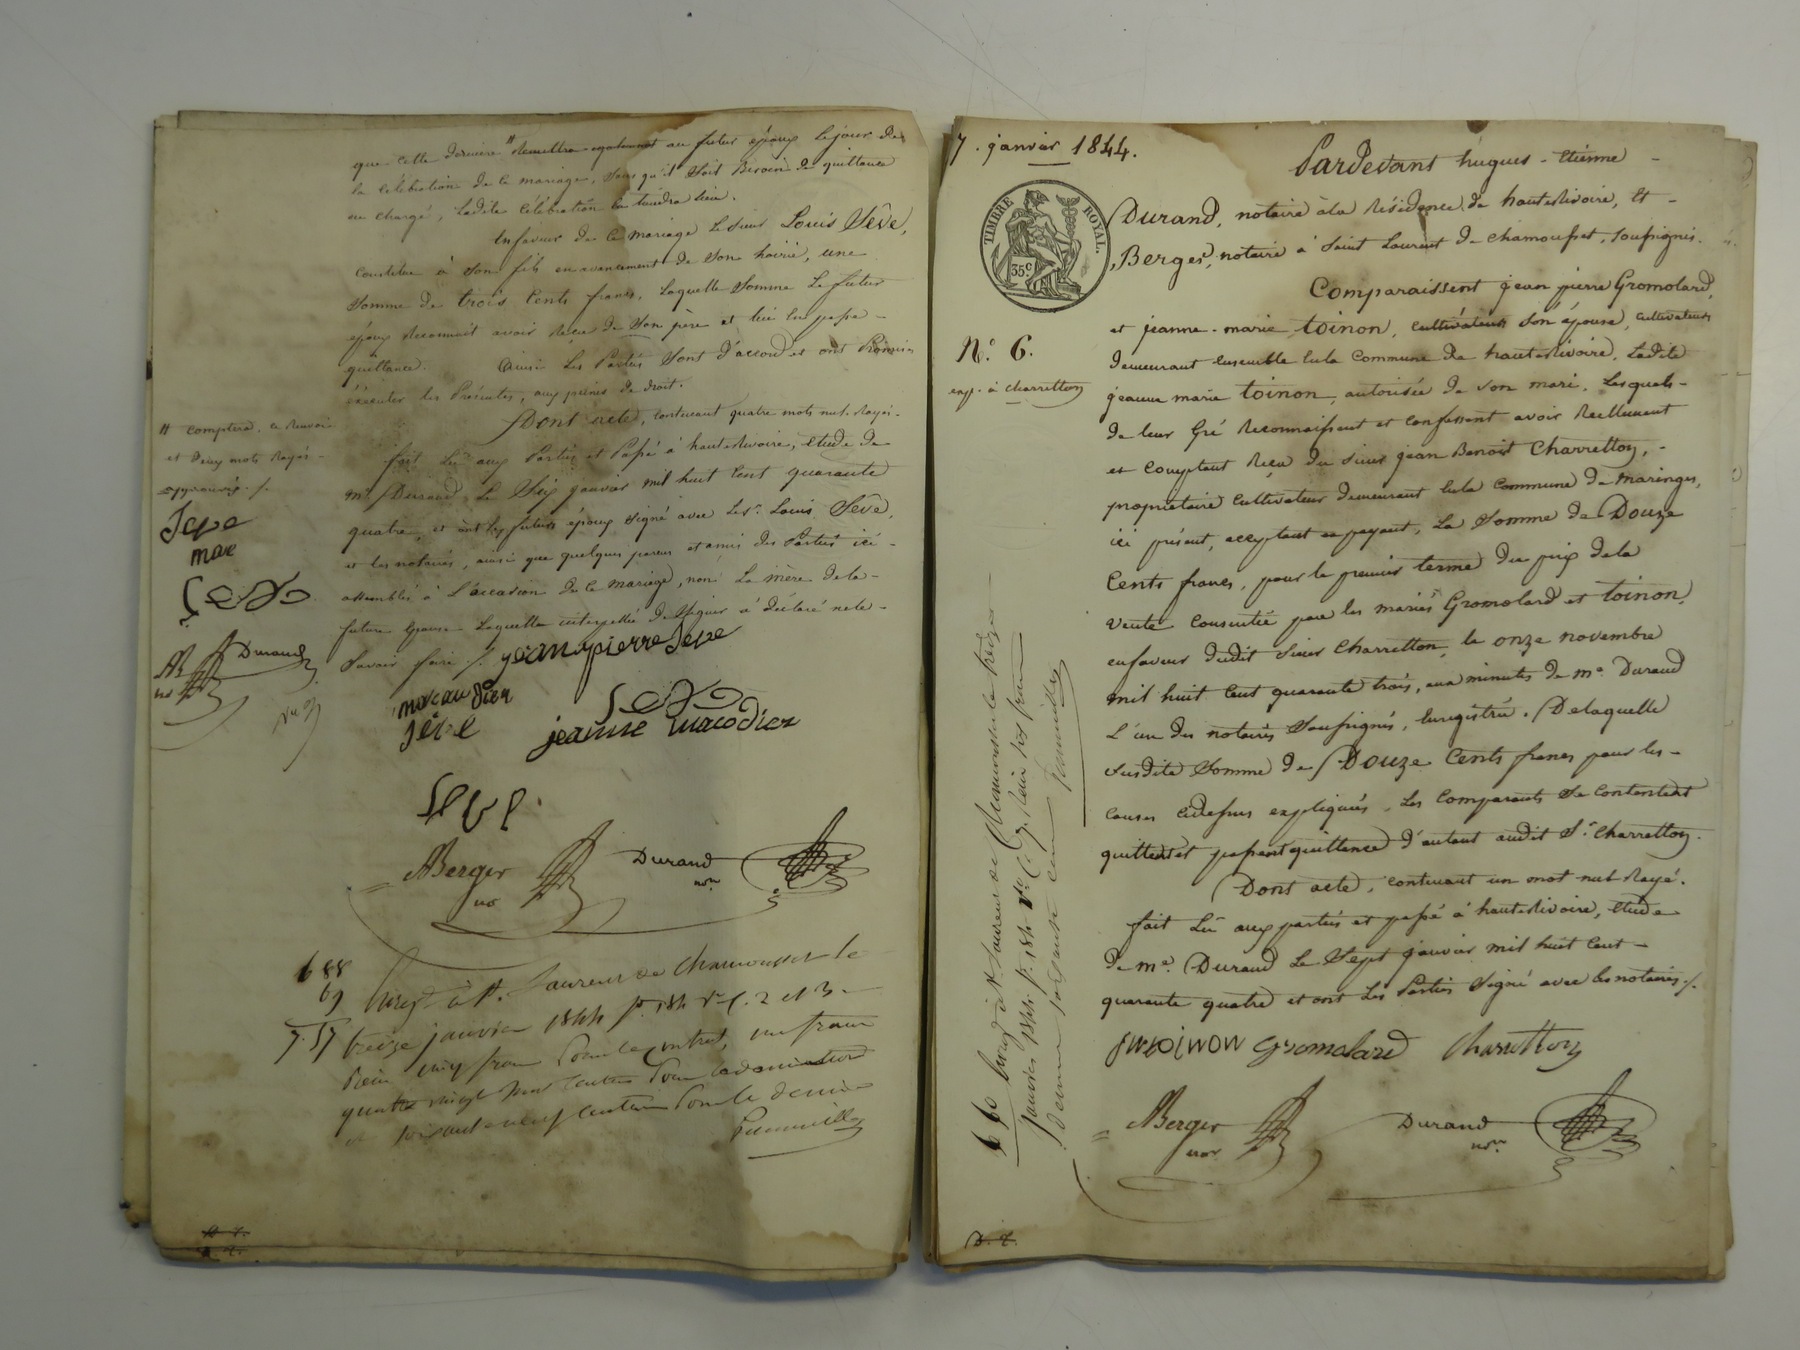 que cette dernière " Remettra également au futur époux le jour de
la célébration de ce mariage, sans qu'il soit Besoin de quittance
en chargé, ladite célébration en tiendra lieu.
En faveur de ce mariage le sieur Louis Sève,
constitue à son fils en avancement de son hoirie, une
somme de trois cents francs, laquelle somme le futur
époux Reconnait avoir Reçue de son père et lui en passe -
quittance. Ainsi les Parties sont d'accord et ont Promis
exécuter les Présentes, aux peines de droit.
Dont acte, contenant quatre mots nuls Rayés.
fait Lu aux Parties et Passé à hauterivoire, étude de
me. Durand, Le Six janvier mil huit cent quarante
quatre, et ont les futurs époux signé avec le sr. Louis Sève,
et les notaires, ainsi que quelques parens et amis des Parties ici -
assemblés à l'occasion de ce mariage, non La mère de la -
future épouse Laquelle interpellée de signer a déclaré ne le -
Savoir faire /.
" comptera, ce renvoi
et deux mots Rayés -
approuvés. /.
Seve
mae
Durand
jean pierre Seve
Sève
jeanne macodier
Seve
ABerger
no
Durand
nore
688
69
7.57
Enregt. à St. Laurent de Chamousset le
treize janvier 1844 fo. 184 Vo. C. 2 et 3 -
Reçu cinq francs Pour le contrat, un franc
quatre vingt
et soixante neuf centimes Pour le decime
7. janvier 1844.
Pardevant hugues - étienne -
TIMBRE ROYAL.
35c
Durand, notaire à la Résidence de hauterivoire, Et -
Berger, notaire à Saint Laurent de chamousset, soussignés.
Comparaissent jean pierre Gromolard,
et jeanne-marie toinon, cultivateurs son épouse, cultivateurs
No. 6.
demeurant ensemble en la commune de hauterivoire, Ladite
exp. à charretton
jeanne marie toinon, autorisée de son mari. Lesquels -
de leur Gré Reconnaissent et confessent avoir Reellement
et Comptant Reçu du sieur jean Benoit Charretton, -
propriétaire cultivateur demeurant en la commune de Maringes,
ici présent, acceptant et payant, La Somme de Douze
Cents francs, pour le premier terme du prix de la
vente consentie par les mariés Gromolard et toinon,
en faveur dudit Sieur Charretton, le onze novembre
mil huit cent quarante trois, aux minutes de me. Durand
L'un des notaires Soussignés, Enregistrée. De laquelle
susdite somme de Douze Cents francs pour les -
causes cidessus expliquées, Les Comparants se contentent
quittent et passent quittance d'autant audit Sr. Charretton.
Dont acte, contenant un mot nul Rayé.
fait Lu aux parties et passé à hauterivoire, étude
de me. Durand Le Sept janvier mil huit cent -
quarante quatre et ont Les Parties Signé avec les notaires /.
jmtoinon Gromolard Charretton
ABerger
nore
Durand
nore
Enregt. à St. Laurent de Chamousset le treize
janvier 1844. fo. 184 Vo. C. 7. Reçu six francs